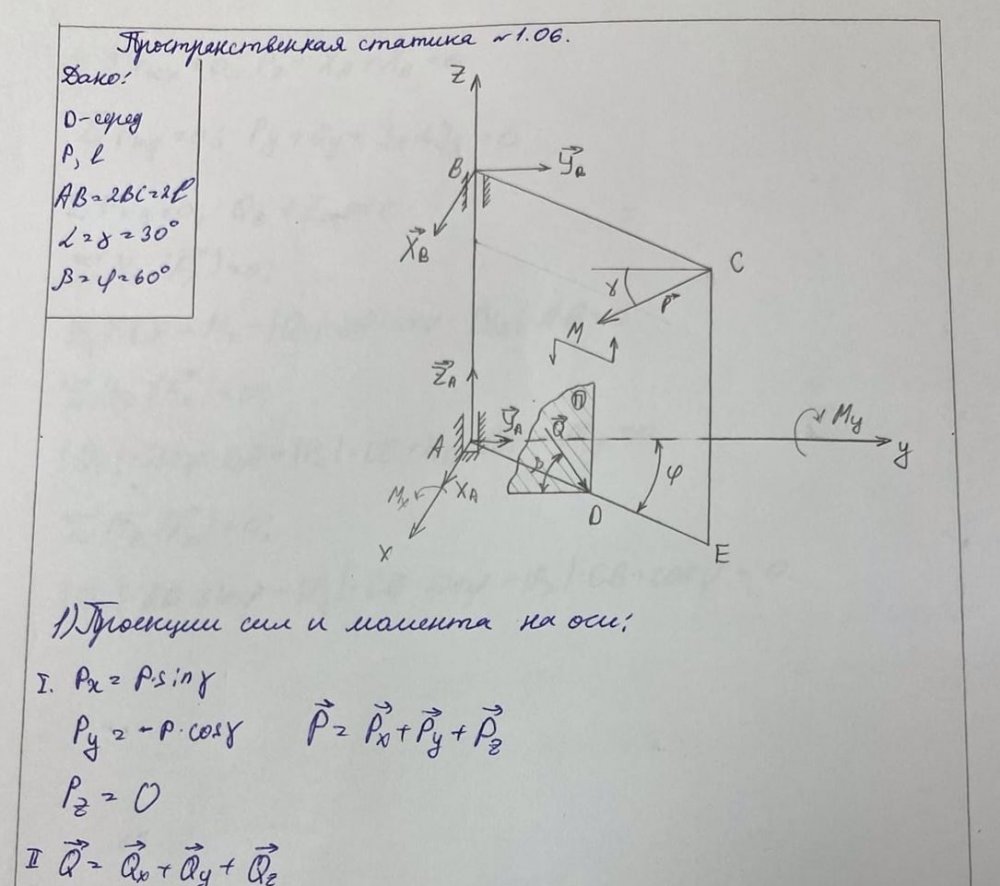 Пространственная статика №1.06.
Дано:
D-серед
P, ℓ
AB=2BC=2ℓ
α=γ=30°
β=φ=60°
Z
B
Y⃗B
X⃗B
C
γ
P⃗
M
Z⃗A
П
Q⃗
My
A
Y⃗A
y
β
φ
Mx
XA
D
X
E
1) Проекции сил и момента на оси:
I. Px = P·sinγ
Py = -P·cosγ P⃗ = P⃗x + P⃗y + P⃗z
Pz = 0
II Q⃗ = Q⃗x + Q⃗y + Q⃗z